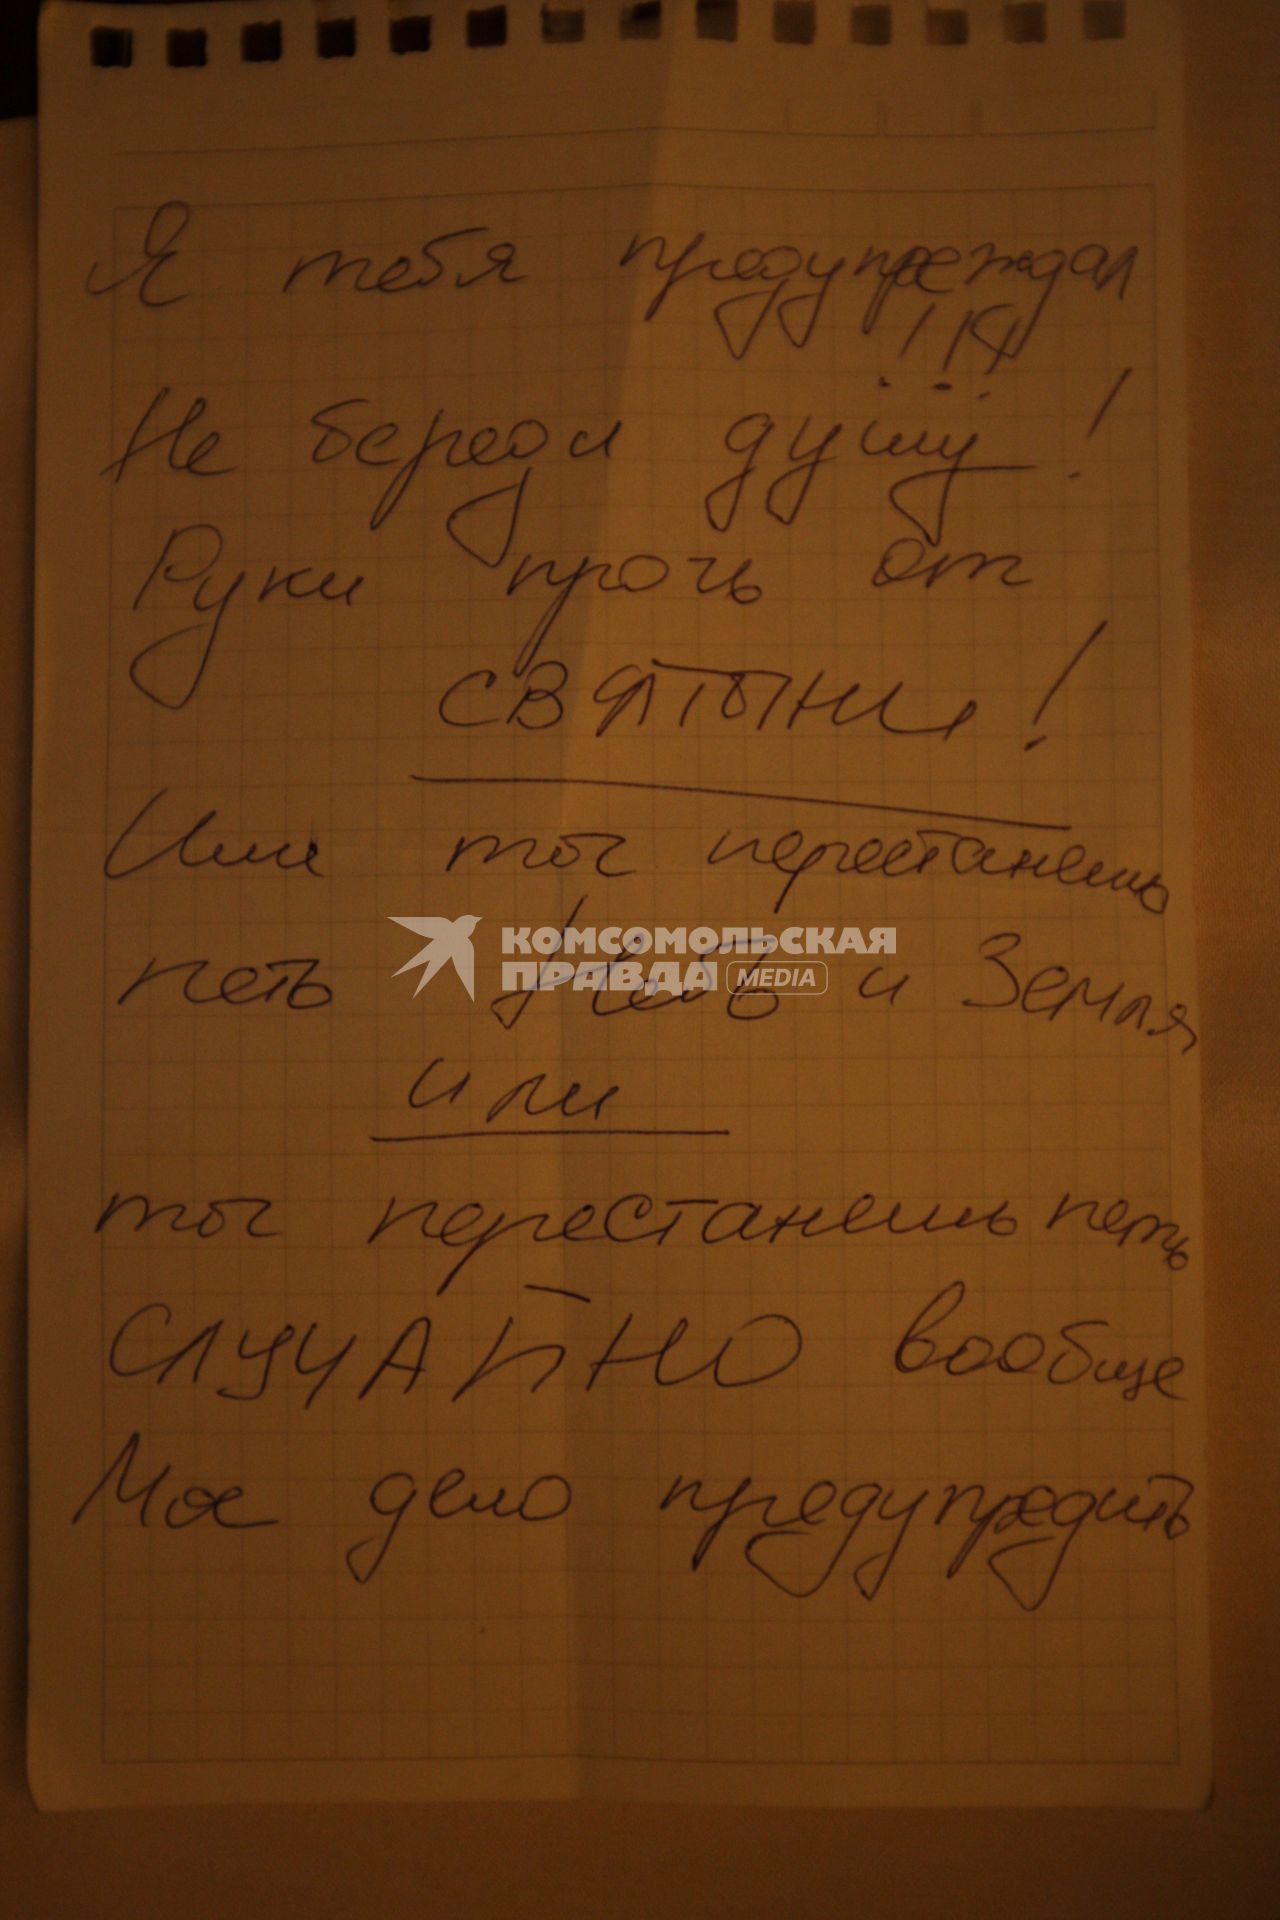 Я тебя предупреждал
!!!
Не береди душу!
Руки прочь от
СВЯТЫНИ!
Или ты перестанешь
петь
КОМСОМОЛЬСКАЯ
ПРАВДА MEDIA
и Земля
или
ты перестанешь петь
СЛУЧАЙНО вообще
Мое дело предупредить